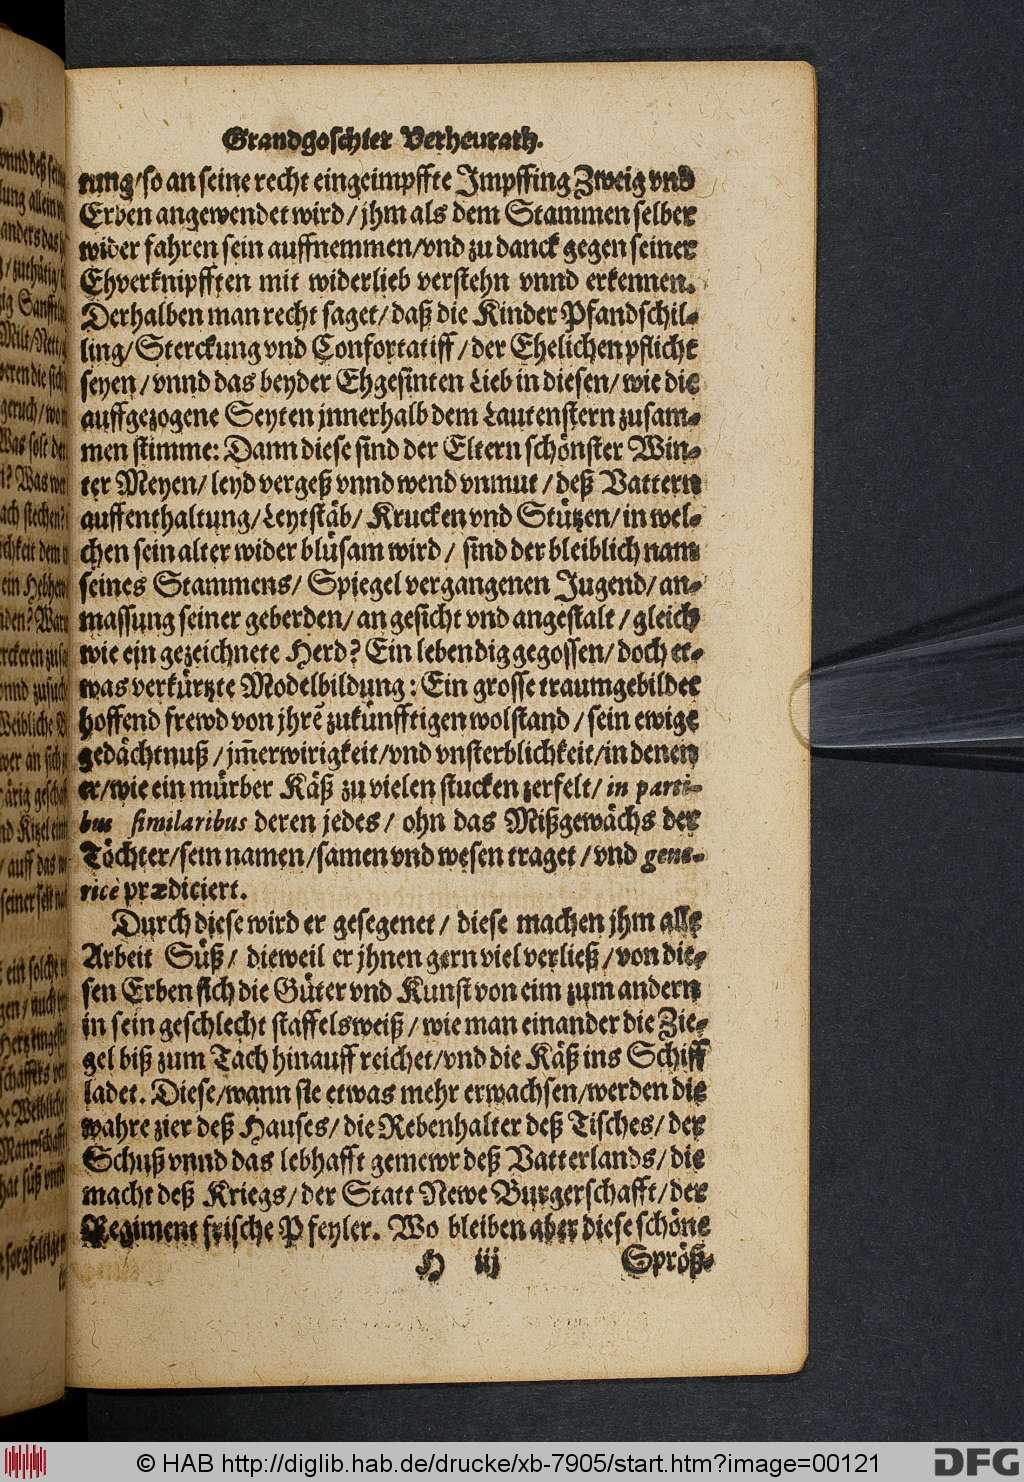 Grandgoschier Verheurath.
tung/so an seine recht eingeimpffte Jmpffing Zweig vnd
Erben angewendet wird/jhm als dem Stammen selber
wider fahren sein auffnemmen/vnd zu danck gegen seiner
Ehverknipfften mit widerlieb verstehn vnnd erkennen.
Derhalben man recht saget/daß die Kinder Pfandschil-
ling/Sterckung vnd Confortatiff/der Ehelichen pflicht
seyen/vnnd das beyder Ehgesinten Lieb in diesen/wie die
auffgezogene Seyten jnnerhalb dem Lautenstern zusam-
men stimme: Dann diese sind der Eltern schönster Win-
ter Meyen/leyd vergeß vnnd wend vnmut/deß Vattern
auffenthaltung/Leytstäb/Krucken vnd Stützen/in wel-
chen sein alter wider blüsam wird/ sind der bleiblich nam
seines Stammens/Spiegel vergangenen Jugend/an-
massung seiner geberden/angesicht vnd angestalt/gleich
wie ein gezeichnete Herd? Ein lebendig gegossen/doch et-
was verkürtzte Modelbildung: Ein grosse traumgebildet
hoffend frewd von jhrẽ zukünfftigen wolstand/sein ewige
gedächtnuß/jm̃erwirigkeit/vnd vnsterblichkeit/in denen
er/wie ein mürber Käß zu vielen stucken zerfelt/in parti-
bus similaribus deren jedes/ ohn das Mißgewächs der
Töchter/sein namen/samen vnd wesen traget/vnd gene-
ricè prædiciert.
Durch diese wird er gesegenet/ diese machen jhm alle
Arbeit Süß/ dieweil er jhnen gern viel verließ/von die-
sen Erben sich die Güter vnd Kunst von eim zum andern
in sein geschlecht staffelsweiß/wie man einander die Zie-
gel biß zum Tach hinauff reichet/vnd die Käß ins Schiff
ladet. Diese/wann sie etwas mehr erwachsen/werden die
wahre zier deß Hauses/die Rebenhalter deß Tisches/der
Schuß vnnd das lebhafft gemewr deß Vatterlands/die
macht deß Kriegs/der Statt Newe Burgerschafft/der
Regiment frische Pfeyler. Wo bleiben aber diese schöne
H iij Spröß-
© HAB http://diglib.hab.de/drucke/xb-7905/start.htm?image=00121
DFG